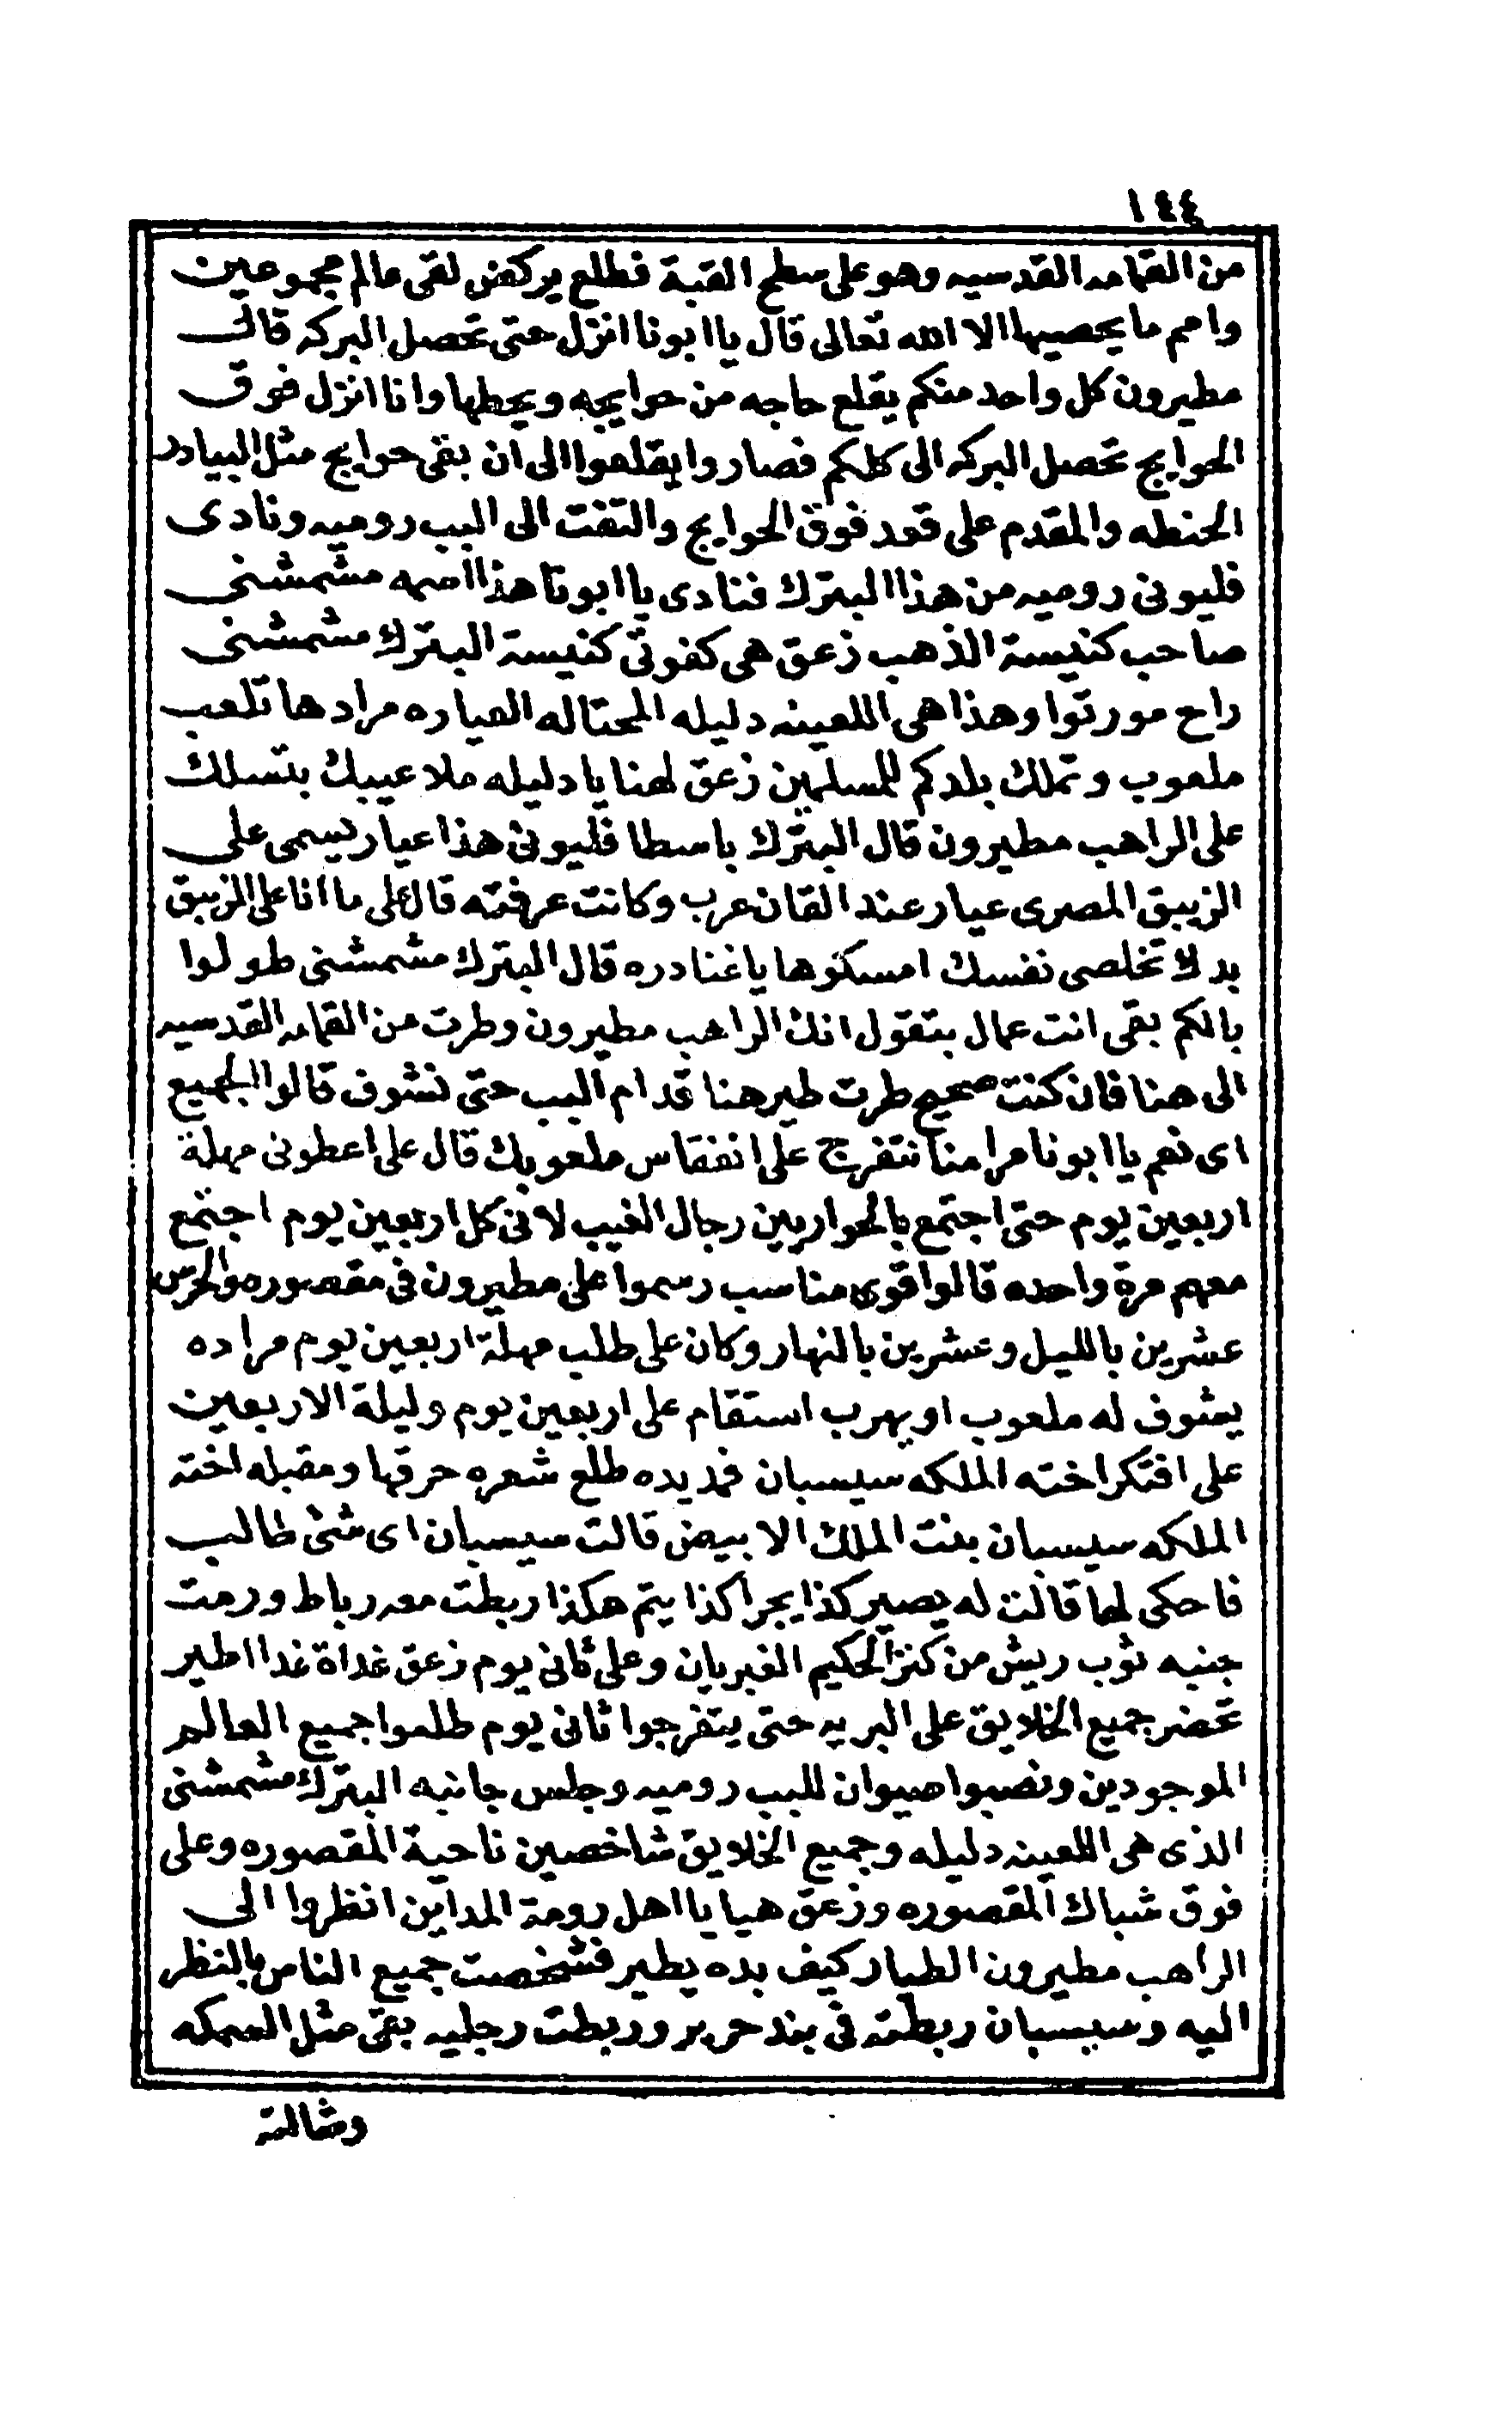 ١٤٤
من القمامه القدسيه وهو على سطح القبة فطلع يركض لقى عالم مجموعين
وامم ما يحصيها الا الله تعالى قال يا ابونا انزل حتى تحصل البركه قال
مطيرون كل واحد منكم يقلع حاجه من حوايجه ويحطها وانا انزل فوق
الحوايج تحصل البركه الى كلكم فصاروا يقلعوا الى ان بقى حوايج مثل البيادر
الحنطه والمقدم على قعد فوق الحوايج والتفت الى البب روميه ونادى
فليونى روميه من هذا البترك فنادى يا ابونا هذا اسمه مشمشنى
صاحب كنيسة الذهب زعق هى كفوتى كنيسة البترك مشمشنى
راح مورتوا وهذا هى اللعينه دليله المحتاله العياره مرادها تلعب
ملعوب وتملك بلدكم للمسلمين زعق لهنا يا دليله ملاعيبك بتسلك
على الراهب مطيرون قال البترك باسطا فليونى هذا عيار يسمى على
الزيبق المصرى عيار عند القان عرب وكانت عرفته قال على ما انا على الزيبق
بدك تخلصى نفسك امسكوها يا غنادره قال البترك مشمشنى طولوا
بالكم بقى انت عمال بتقول انك الراهب مطيرون وطرت من القمامه القدسيه
الى هنا فان كنت صحيح طرت طير هنا قدام البب حتى نشوف قالوا الجميع
اى نعم يا ابونا مرامنا نتفرج على انفقاس ملعوبك قال على اعطونى مهلة
اربعين يوم حتى اجتمع بالحواريين رجال الغيب لانى كل اربعين يوم اجتمع
معهم مرة واحده قالوا قوى مناسب رسموا على مطيرون فى مقصوره والحرس
عشرين بالليل وعشرين بالنهار وكان على طلب مهلة اربعين يوم مراده
يشوف له ملعوب او يهرب استقام على اربعين يوم وليلة الاربعين
على افتكر اخته الملكه سيسبان فمد يده طلع شعره حرقها ومقبله اخته
الملكه سيسبان بنت الملك الابيض قالت سيسبان اى شئ طالب
فاحكى لها قالت له يصير كذا يجرا كذا يتم هكذا ربطت معه رباط ورمت
جنبه ثوب ريش من كنز الحكيم الغبريان وعلى ثانى يوم زعق غداة غدا اطير
تحضر جميع الخلايق على البريه حتى يتفرجوا ثانى يوم طلعوا جميع العالم
الموجودين ونصبوا صيوان للبب روميه وجلس جانبه البترك مشمشنى
الذى هى اللعينه دليله وجميع الخلايق شاخصين ناحية المقصوره وعلى
فوق شباك المقصوره وزعق هيا يا اهل رومة المداين انظروا الى
الراهب مطيرون الطيار كيف بده يطير فشخصت جميع الناس بالنظر
اليه وسيسبان ربطته فى بند حرير وربطت رجليه بقى مثل السمكه
وشالته